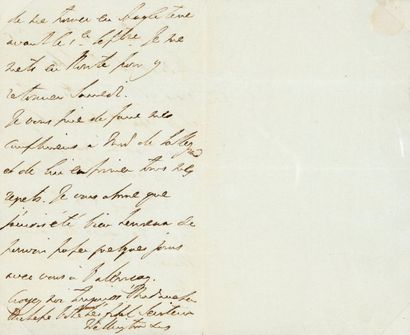 de me trouver en Angleterre
avant le 1er Septbre. Je me
mets en Route pour y
retourner Samedi.
Je vous prie de faire mes
complimens à Md de
et de lui exprimer tous mes
regrets. Je vous assure que
j'aurois été bien heureux de
pouvoir passer quelques jours
avec vous à
Croyez moi toujours Madame
Votre fidel Serviteur
Wellington